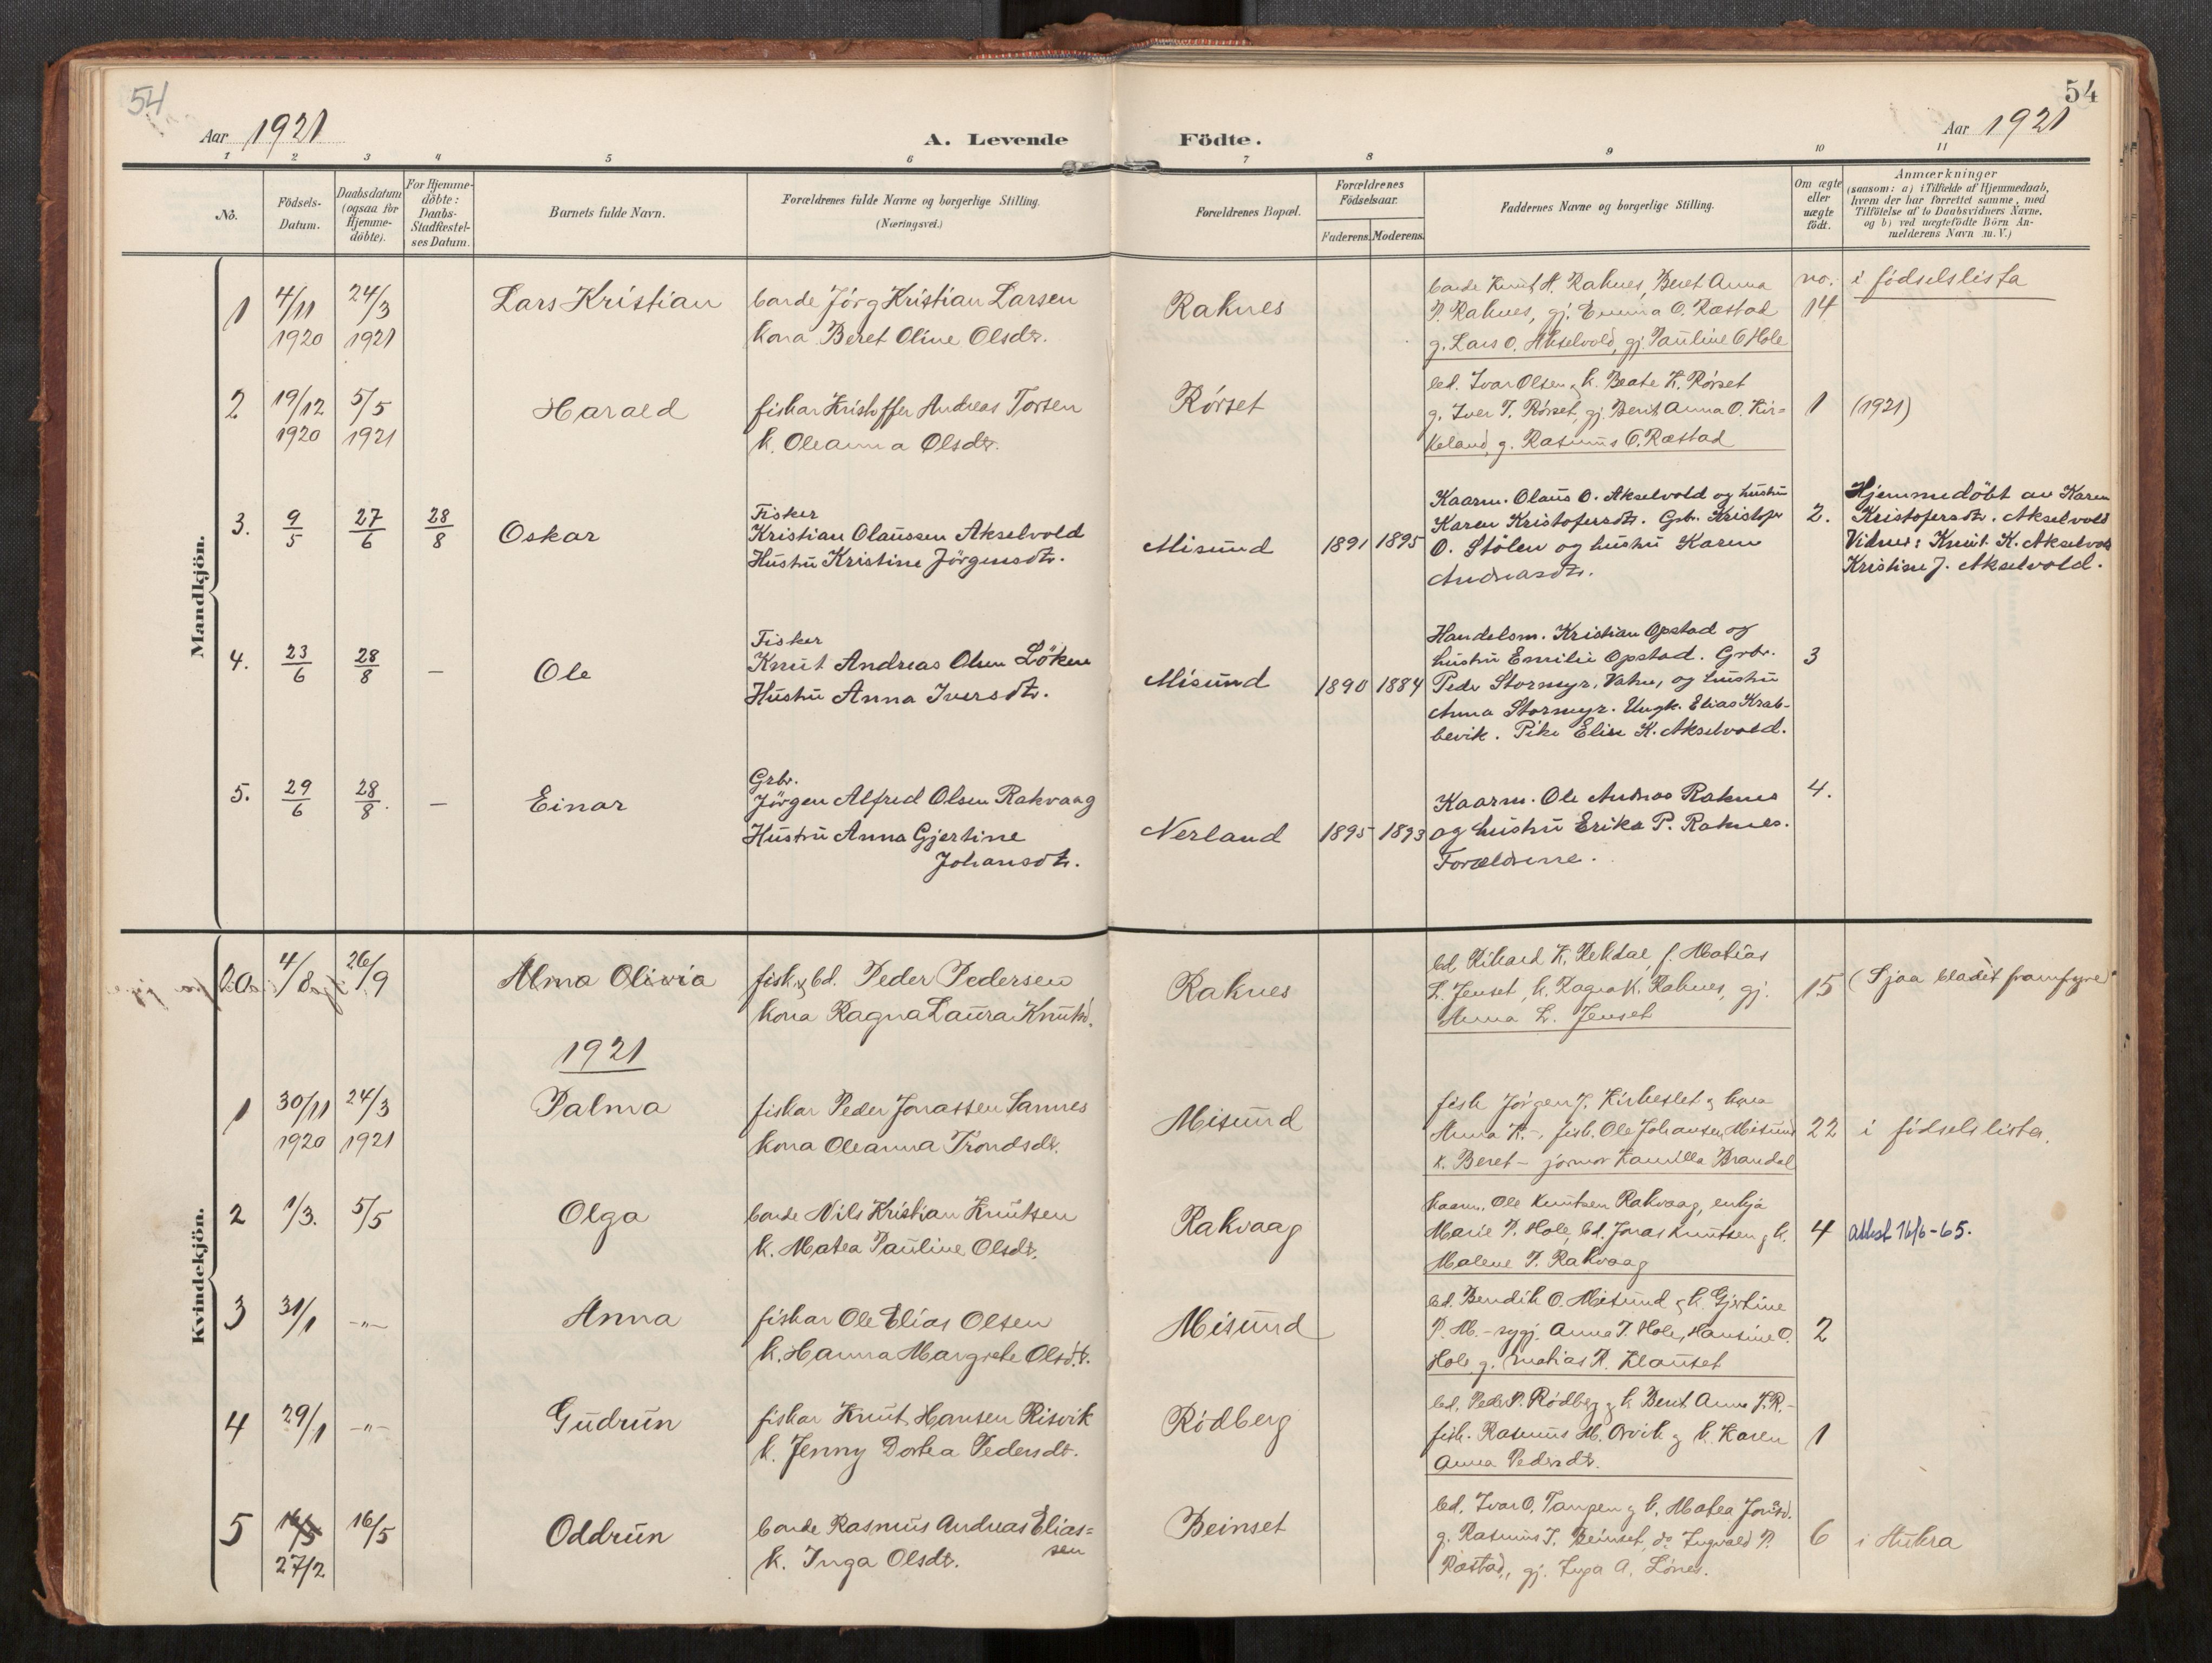 54
54
Aar 1921
A. Levende Födte.
Aar 1921
1 2 3 4 5 6 7 8 9 10 11
No.
Födsels-
Datum.
Daabsdatum
(ogsaa for
Hjemme-
döbte).
For Hjemme-
döbte:
Daabs-
Stadfestel-
ses Datum.
Barnets fulde Navn.
Forældrenes fulde Navne og borgerlige Stilling.
(Næringsvei.)
Forældrenes Bopæl.
Forældrenes
Födselsaar.
Faderens. Moderens.
Faddernes Navne og borgerlige Stilling.
Om ægte
eller
uægte
födt.
Anmærkninger
(saasom: a) i Tilfælde af Hjemmedaab,
hvem der har forrettet samme, med
Tilföielse af to Daabsvidners Navne,
og b) ved uægtefödte Börn An-
melderens Navn m. V.)
Mandkjön.
1
4/11
1920
24/3
1921
Lars Kristian
bonde Jörg Kristian Larsen
kona Beret Oline Olsdtr.
Raknes
bonde Knut H. Raknes, Beret Anna
P. Raknes, gj. Emma O. Ræstad
g. Lars O. Akselvold, gj. Pauline O Hole
no.
14
i födselslista
2
19/12
1920
5/5
1921
Harald
fiskar Kristoffer Andreas Torsen
k. Oleanna Olsdtr.
Rörset
bd. Ivar Olsen & k. Beate K. Rörset
g. Iver T. Rörset, gj. Berit Anna O. Kir=
keland, g. Rasmus O. Ræstad
1
(1921)
3.
9/5
27/6
28/8
Oskar
Fisker
Kristian Olaussen Akselvold
Hustru Kristine Jörgensdtr.
Misund
1891 1895
Kaarm. Olaus O. Akselvold og hustru
Karen Kristofersdtr. Grb. Kristofer
O. Stölen og hustru Karen
Andreasdtr.
2.
Hjemmedöbt av Karen
Kristofersdtr. Akselvold
Vidner: Knut K. Akselvold
Kristine J. Akselvold.
4.
23/6
28/8
—
Ole
Fisker
Knut Andreas Olsen Löken
Hustru Anna Iversdtr.
Misund
1890 1884
Handelsm. Kristian Opstad og
hustru Emilie Opstad. Grbr.
Peder Stormyr, og hustru
Anna Stormyr. Ungk. Elias Krab-
bevik. Pike Elise K. Akselvold.
3
5.
29/6
28/8.
—
Einar
Grbr.
Jörgen Alfred Olsen Rakvaag
Hustru Anna Gjertine
Johansdtr.
Nerland
1895 1893
Kaarm. Ole Andreas Raknes
og hustru Erika P. Raknes.
Forældrene.
4.
Kvindekjön.
20
4/8
26/9
Alma Olivia
fisk. & bd. Peder Pedersen
kona Ragna Laura Knutsd.
Raknes
bd. Rikard K. Rekdal, f. Matias
L. Jenset, k. Ragna K. Raknes, gj.
Anna L. Jenset
15
(Sjaa bladet framfyre)
1921
1
30/11
1920
24/3
1921
Palma
fiskar Peder Jonassen Sannes
kona Oleanna Trondsdtr.
Misund
fisk Jörgen J. Kirkeslet & kona
Anna K. -, fisk. Ole Johansen Misund
k. Beret - jormor Kamilla Brandal
22
i födselslista.
2
1/3.
5/5
Olga
bonde Nils Kristian Knutsen
k. Matea Pauline Olsdtr.
Rakvaag
kaarm. Ole Knutsen Rakvaag, enkja
Marie P. Hole, bd. Jonas Knutsen & k.
Malene T. Rakvaag
4
attest 16/6-65.
3
31/1
-"-
Anna
fiskar Ole Elias Olsen
k. Hanna Margrete Olsdtr.
Misund
bd. Bendik O. Misund & k. Gjertine
P. M. - sygj. Anna T. Hole, Hansine O.
Hole g. Matias R. Klauset
2
4
29/1
-"-
Gudrun
fiskar Knut Hansen Risvik
k. Jenny Dortea Pedersdtr.
Rödberg
bd. Peder P. Rödberg & k Berit Anna J. R. -
fisk. Rasmus M. Orvik & k. Karen
Anna Pedersdtr.
1
5
16/5
27/2
16/5
Oddrun
bonde Rasmus Andreas Elias=
sen
k. Inga Olsdtr.
Beinset
bd. Ivar O. Tangen & k. Matea Jonsd.
g. Rasmus T. Beinset, do Ingvald P.
Ræstad, gj. Inga A. Lönes.
6
i Aukra